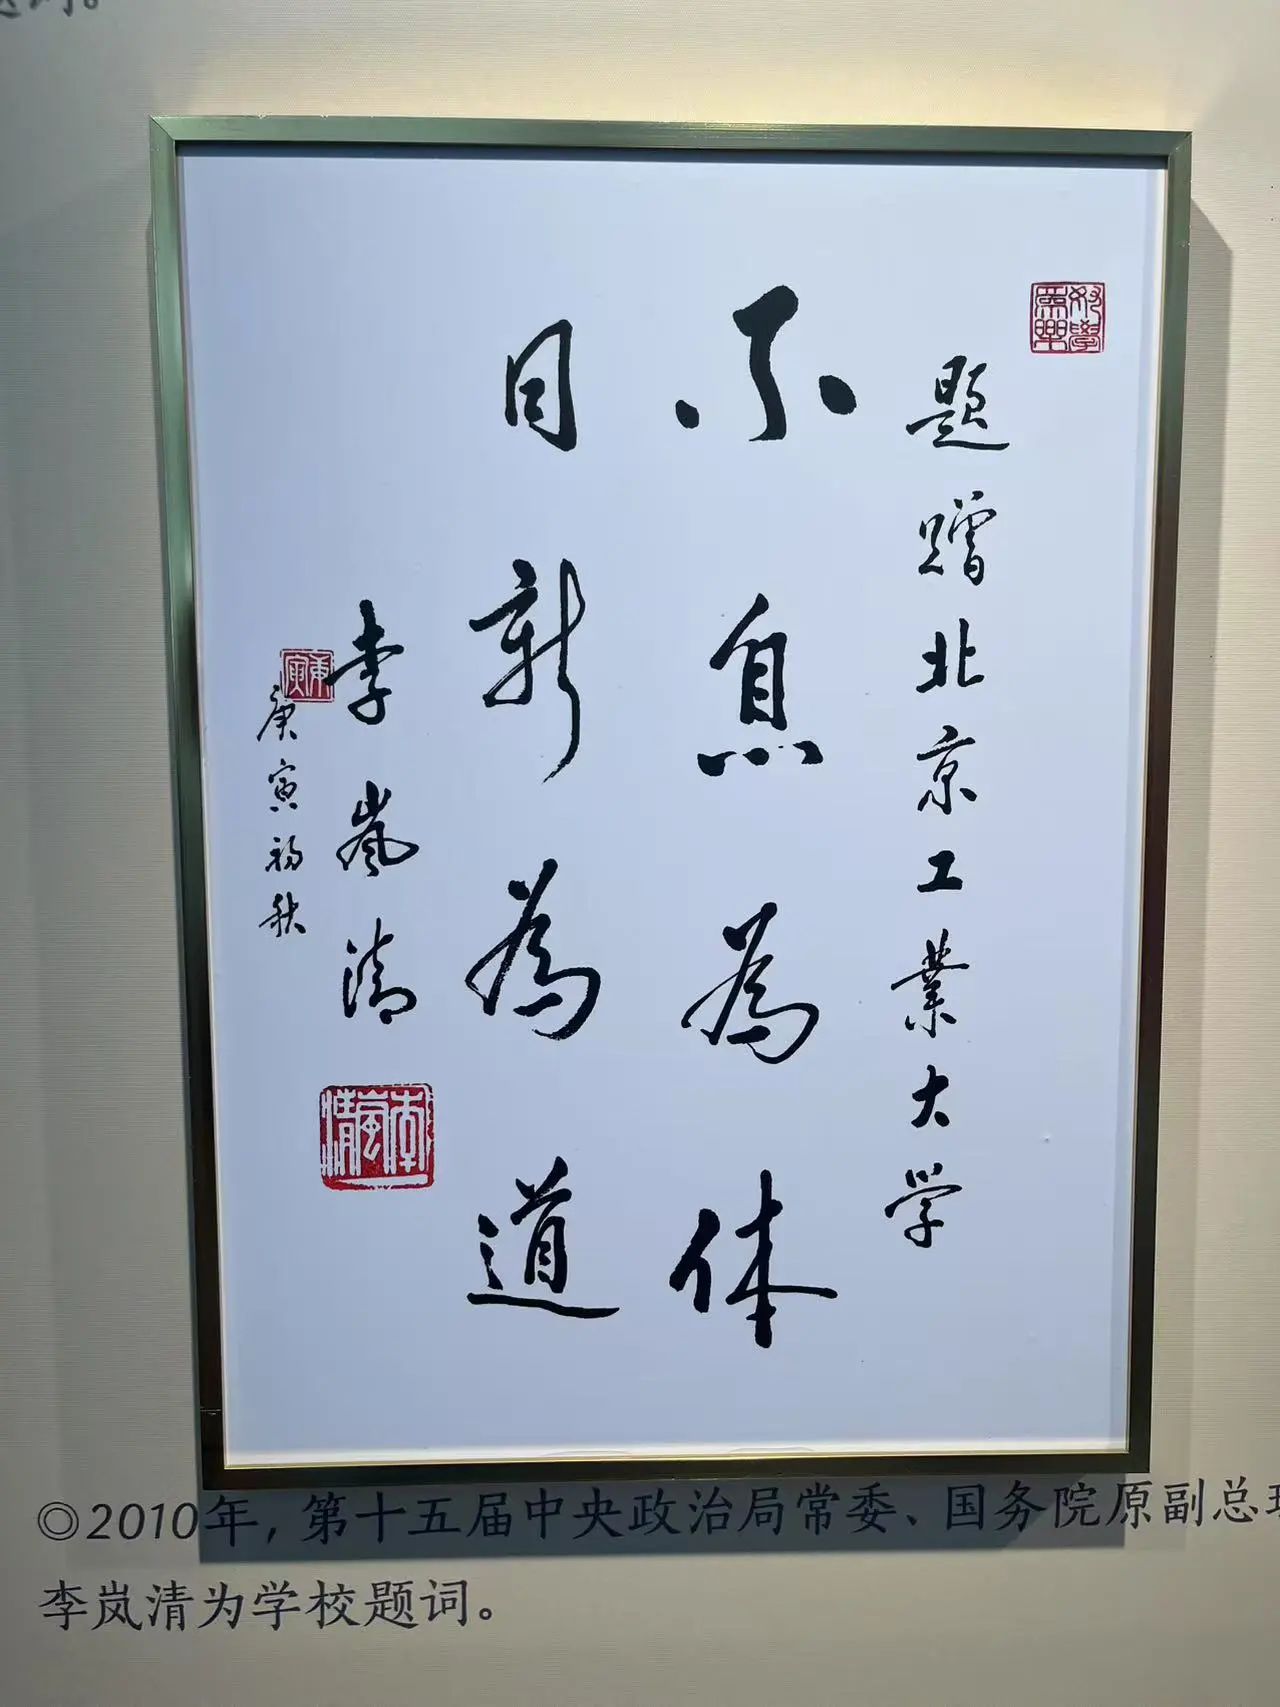 题赠北京工業大学
不息為体
日新為道
李嵐清
庚寅初秋
庚寅
李嵐清
◎2010年，第十五届中央政治局常委、国务院原副总理
李岚清为学校题词。